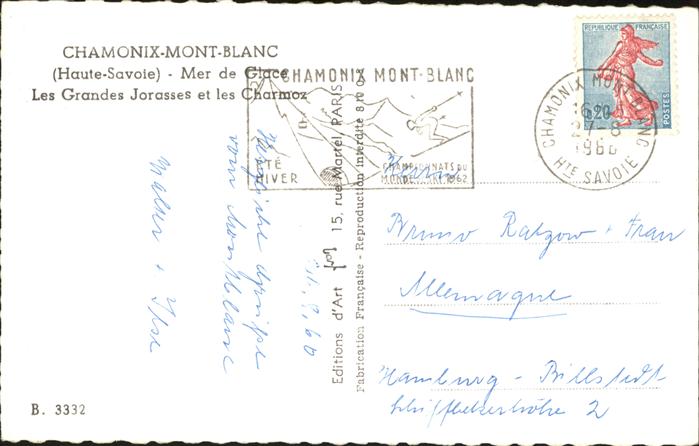 CHAMONIX-MONT-BLANC
(Haute-Savoie) - Mer de Glace
Les Grandes Jorasses et les Charmoz
CHAMONIX MONT-BLANC
ÉTÉ
HIVER
CHAMPIONNATS DU
MONDE 1962
REPUBLIQUE FRANÇAISE
0,20
POSTES
CHAMONIX MONT-BLANC
16
27-8
1960
HTE SAVOIE
Herzliche Grüsse
vom Montblanc
Walter + Ilse
8.60
Editions d'Art 15, rue Martel, PARIS
Fabrication Française - Reproduction interdite
Herrn
Bruno Ratzow + Frau
Allemagne
Hamburg - Billstedt
Schiffbekerhöhe 2
B. 3332